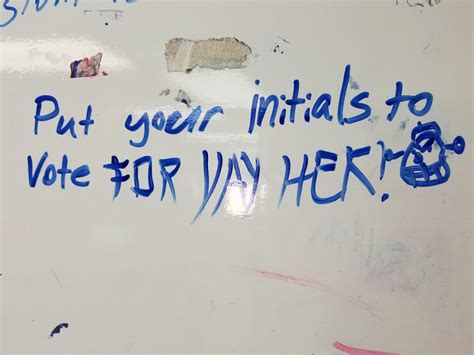 Put your initials to
Vote FOR VAY HEK!